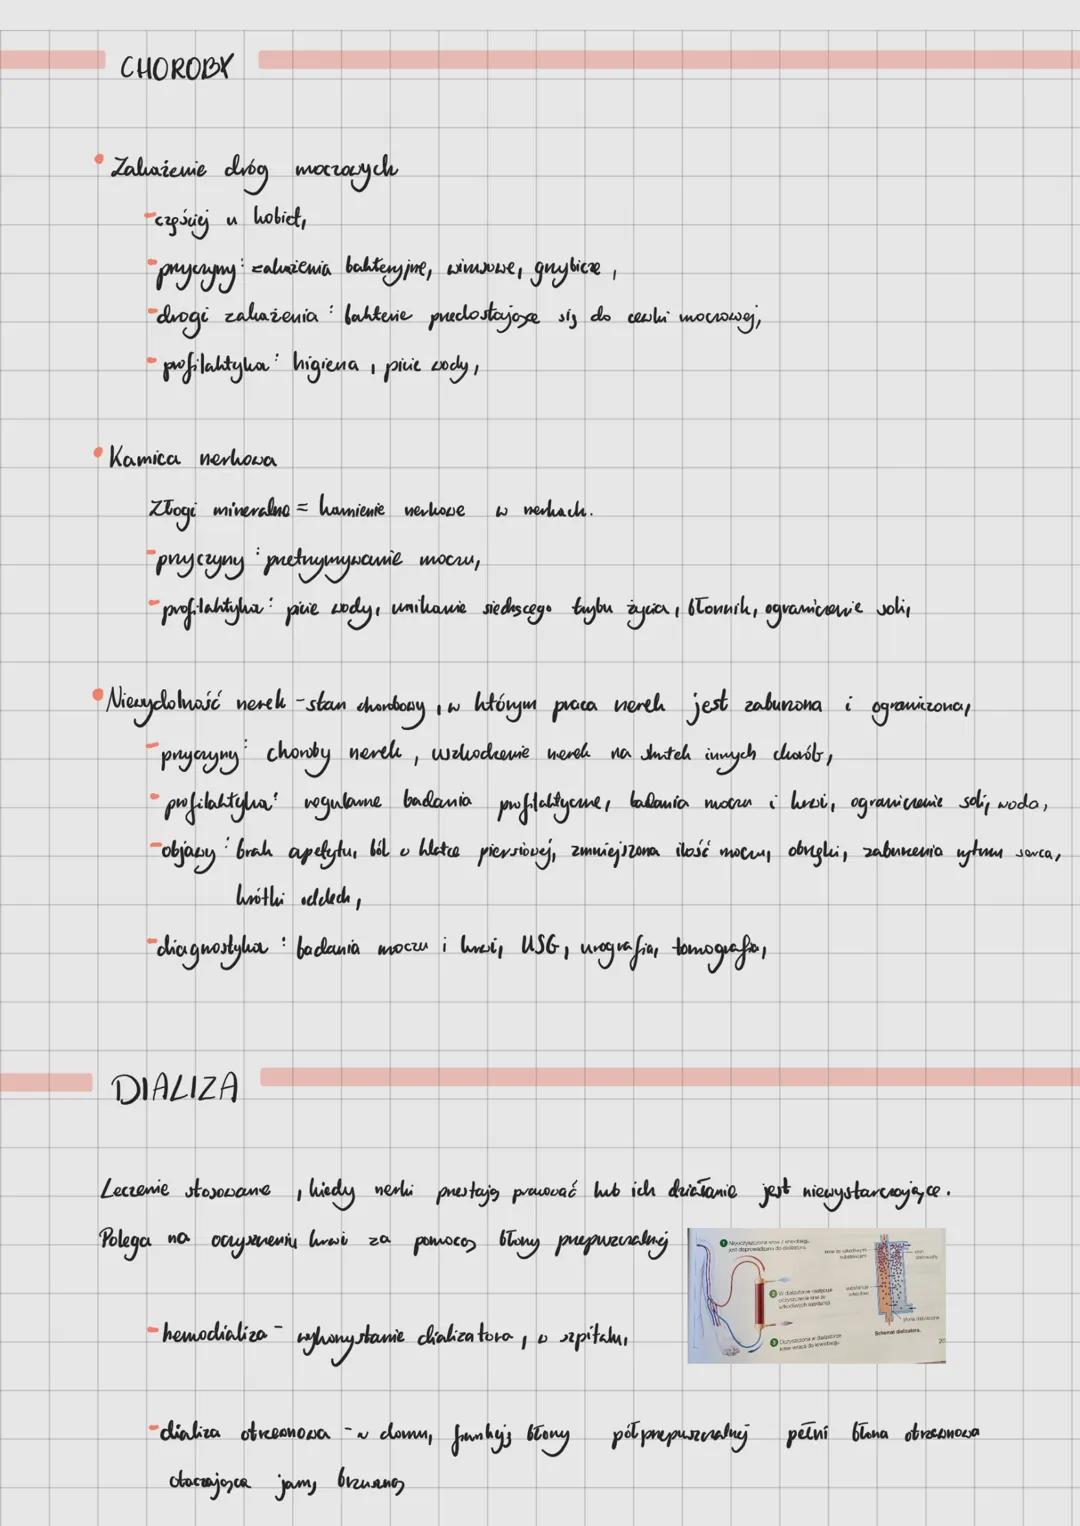 CHOROBY
Zakażenie dróg moczowych
- częściej u kobiet,
- przyczyny: zakażenia bakteryjne, wirusowe, grzybicze,
- drogi zakażenia: bakterie przedostające się do cewki moczowej,
- profilaktyka: higiena, picie wody,
Kamica nerkowa
Złogi mineralne = kamienie nerkowe w nerkach.
- przyczyny: przetrzymywanie moczu,
- profilaktyka: picie wody, unikanie siedzącego trybu życia, błonnik, ograniczenie soli,
Niewydolność nerek - stan chorobowy, w którym praca nerek jest zaburzona i ograniczona,
- przyczyny: choroby nerek, uszkodzenie nerek na skutek innych chorób,
- profilaktyka: regularne badania profilaktyczne, badania moczu i krwi, ograniczenie soli, woda,
- objawy: brak apetytu, ból w klatce piersiowej, zmniejszona ilość moczu, obrzęki, zaburzenia rytmu serca,
krótki oddech,
- diagnostyka: badania moczu i krwi, USG, urografia, tomografia,
DIALIZA
Leczenie stosowane, kiedy nerki przestają pracować lub ich działanie jest niewystarczające.
Polega na oczyszczeniu krwi za pomocą błony przepuszczalnej
1 Nieoczyszczona krew z
jest doprowadzana do dializatora.
2 W dializatorze następuje
oczyszczenie krwi ze
szkodliwych substancji.
3 Oczyszczona w dializatorze
krew wraca do krwiobiegu.
krew ze szkodliwymi
substancjami
płyn
dializacyjny
substancje
szkodliwe
błona
Schemat dializatora.
- hemodializa - wykorzystanie dializatora, w szpitalu,
- dializa otrzewnowa - w domu, funkcję błony półprzepuszczalnej pełni błona otrzewnowa
otaczająca jamę brzuszną